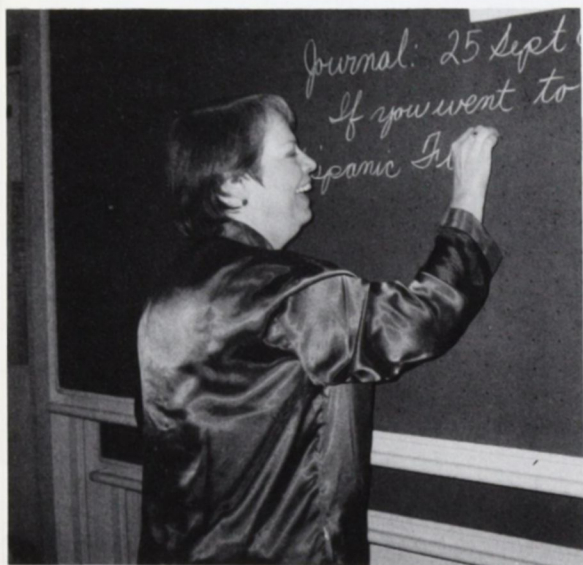 Journal: 25 Sept
If you went to
ispanic Fi